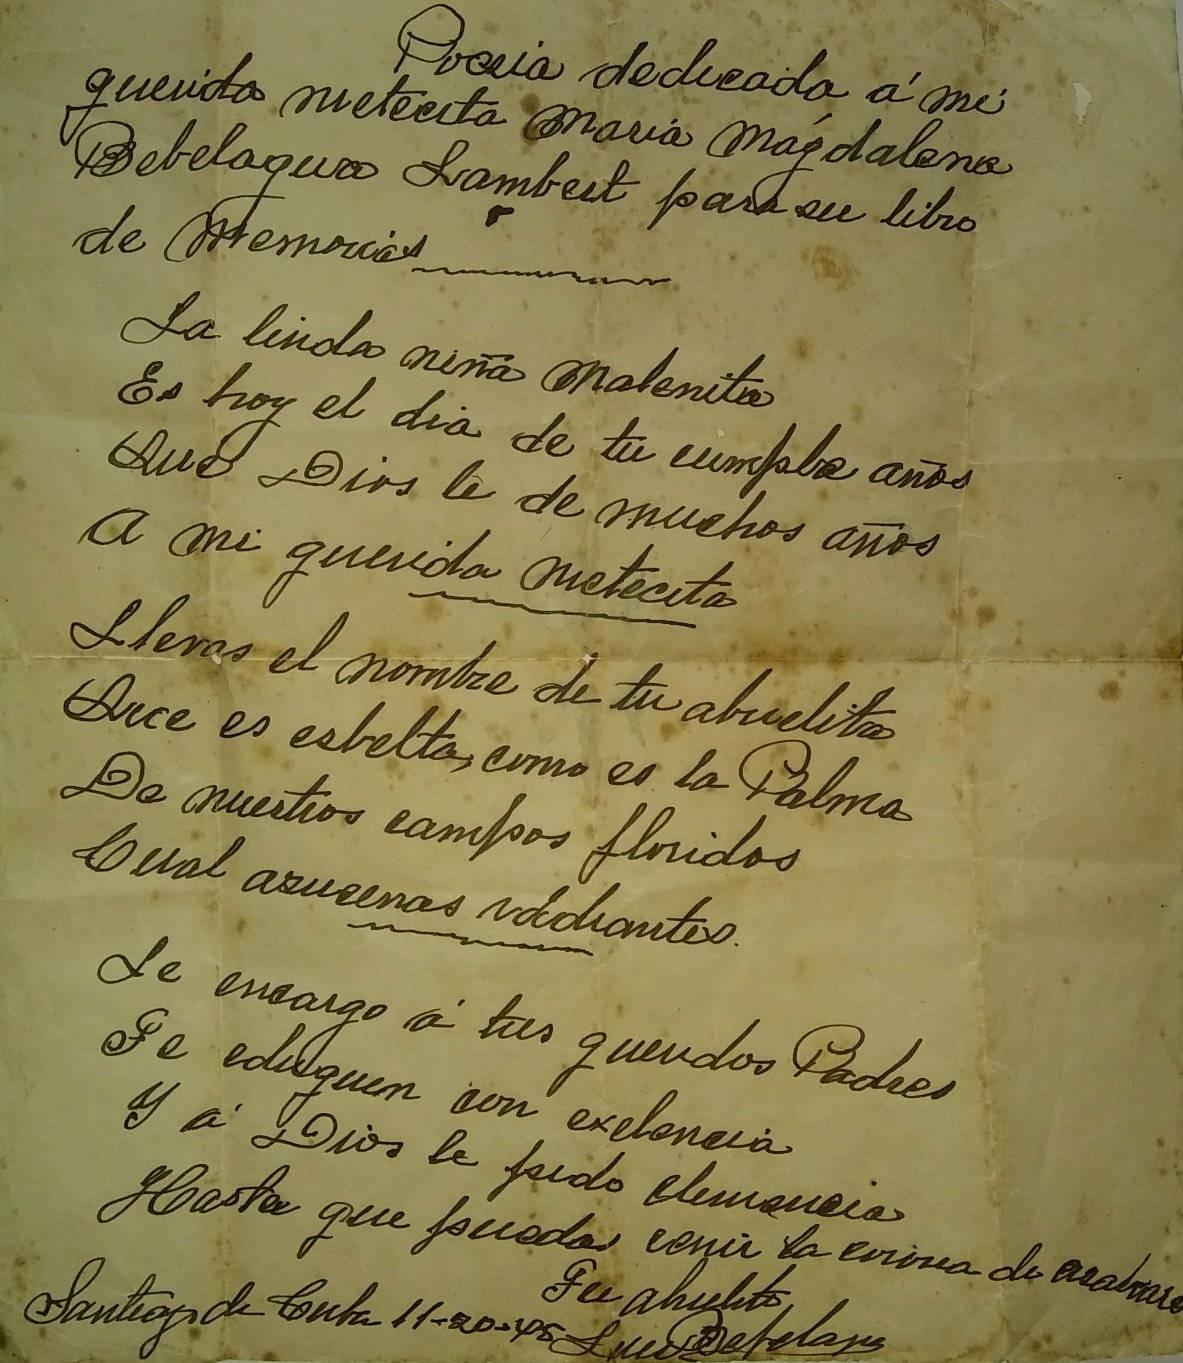 Poecia dedicada á mi
querida nietecita Maria Mágdalena
Bebelagua Lambert para su libro
de Memorias
La linda niña Malenita
Es hoy el dia de tu cumple años
Que Dios le de muchos años
A mi querida nietecita
Llevas el nombre de tu abuelita
Que es esbelta, como es la Palma
De nuestros campos floridos
Cual azucenas
Le encargo á tus queridos Padres
Te eduquen con exelencia
Y á Dios le pido clemencia
Hasta que puedas ceñir la corona de
Tu abuelito
Santiago de Cuba 11-20-45 Luis Bebelagua